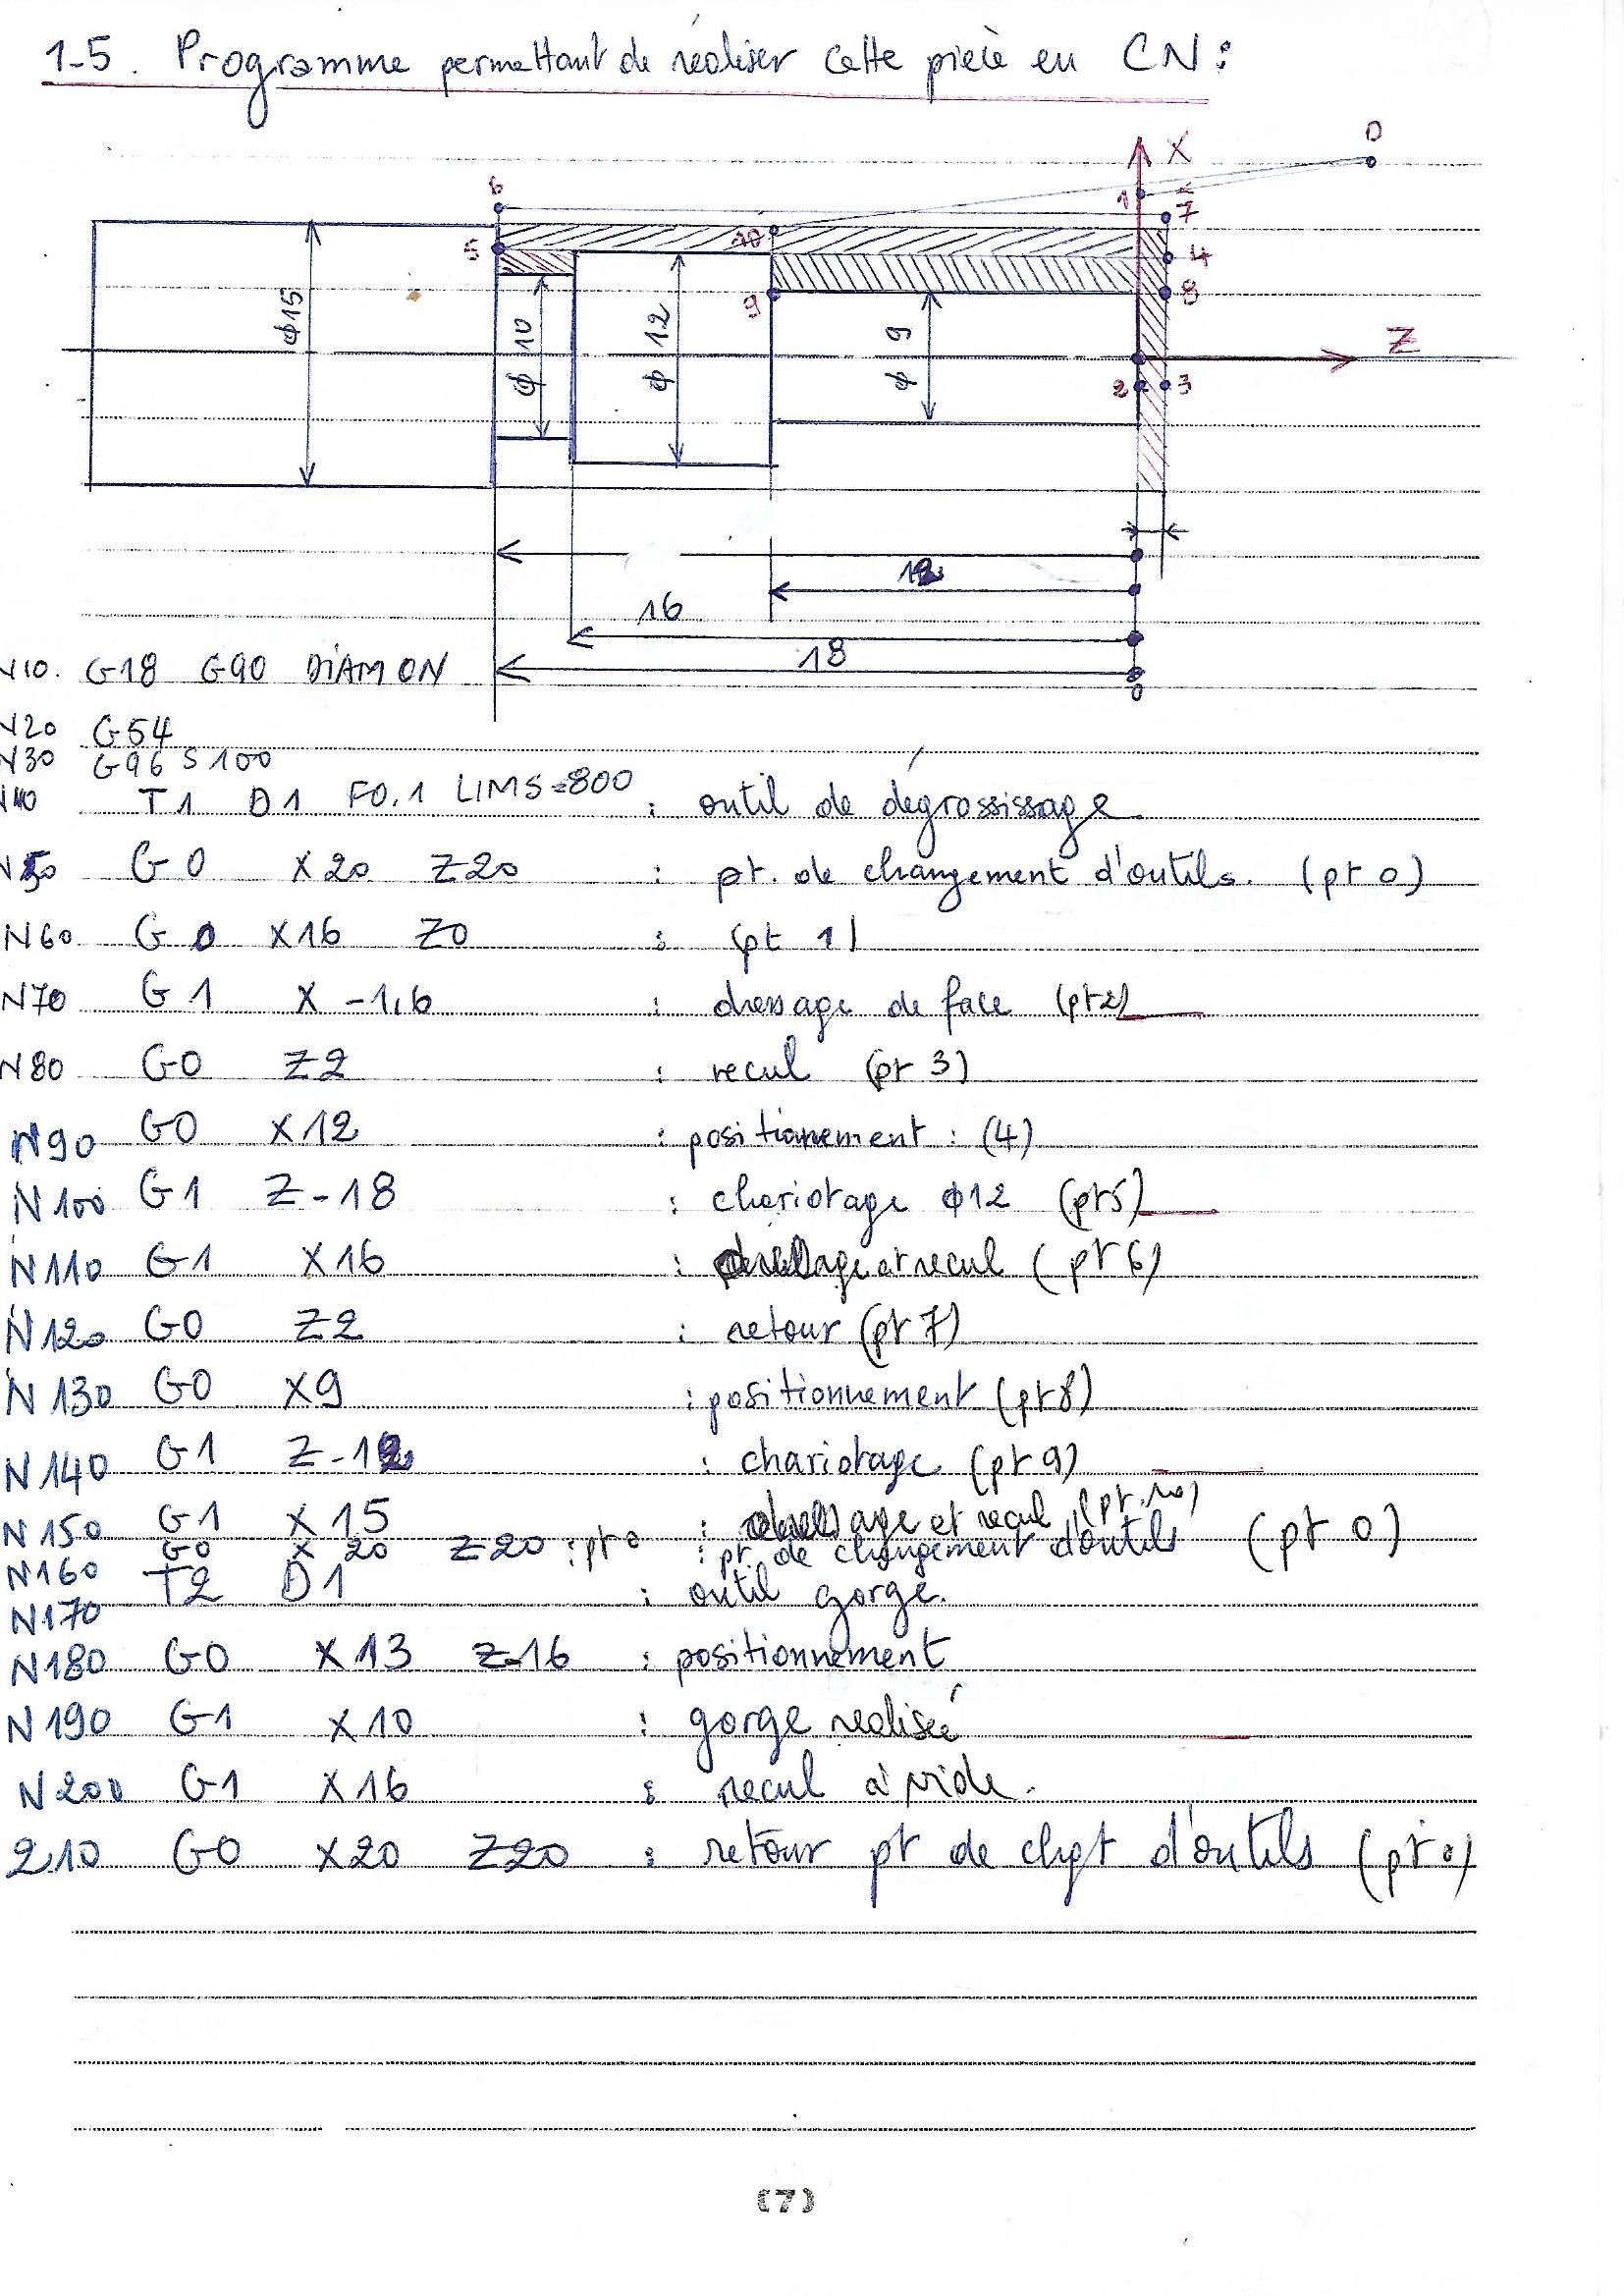 1-5. Programme permettant de réaliser cette pièce en CN:
0
X
6
1
7
10
5
4
9
8
Z
2
3
ϕ15
ϕ 10
ϕ 12
ϕ 9
12
16
18
0
N10. G18 G90 DIAMON
N20 G54
N30 G96 S100
N40 T1 D1 F0.1 LIMS=800 : outil de dégrossissage
N50 G0 X20 Z20 : pt. de changement d'outils. (pt 0)
N60 G0 X16 Z0 : (pt 1)
N70 G1 X-1,6 : dressage de face (pt2)
N80 G0 Z2 : recul (pt 3)
N90 G0 X12 : positionnement : (4)
N100 G1 Z-18 : chariotage ϕ12 (pt5)
N110 G1 X16 : dressage et recul (pt 6)
N120 G0 Z2 : retour (pt 7)
N130 G0 X9 : positionnement (pt8)
N140 G1 Z-12 : chariotage (pt 9)
N150 G1 X15 : dressage et recul (pt.10)
N160 G0 X20 Z20 : pt 0 : pt de changement d'outils (pt 0)
N170 T2 D1 : outil gorge.
N180 G0 X13 Z-16 : positionnement
N190 G1 X10 : gorge realisée
N200 G1 X16 : recul à vide.
210 G0 X20 Z20 : retour pt de chgt d'outils (pt 0)
(7)